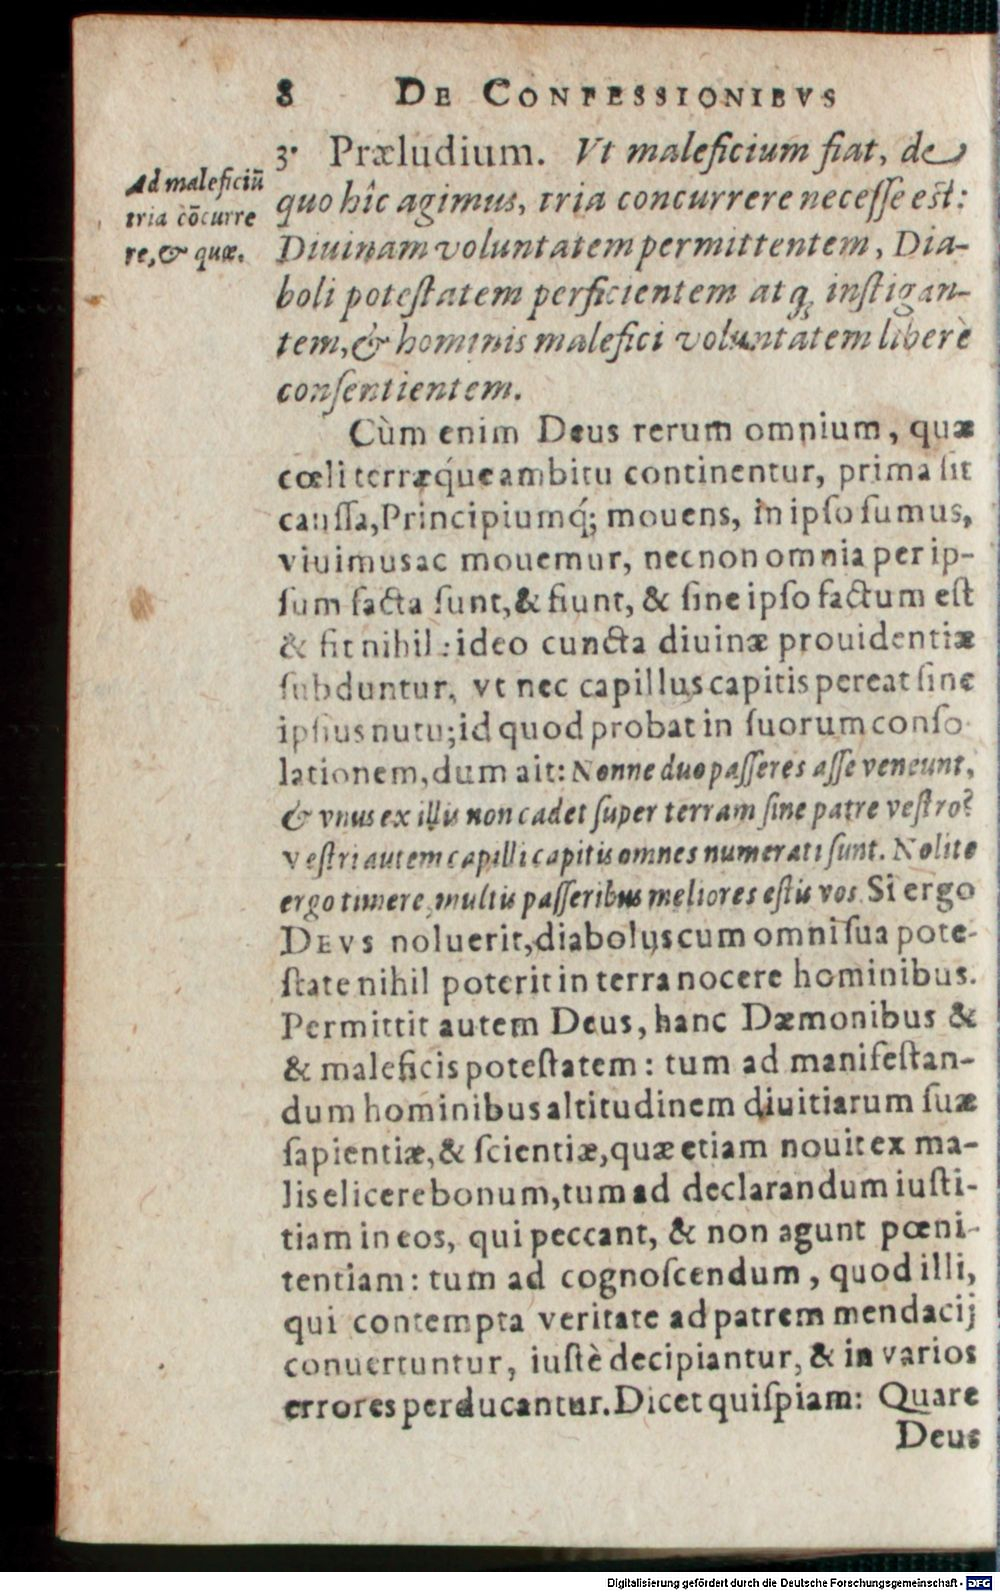 8 DE CONFESSIONIBVS
Ad maleficiũ
tria cōcurre
re, & quæ.
3. Præludium. Vt maleficium fiat, de
quo hîc agimus, tria concurrere necesse est:
Diuinam voluntatem permittentem, Dia-
boli potestatem perficientem atq; instigan-
tem, & hominis malefici voluntatem liberè
consentientem.
Cùm enim Deus rerum omnium, quæ
cœli terræq́ue ambitu continentur, prima sit
caussa, Principiumq́; mouens, in ipso sumus,
viuimus ac mouemur, necnon omnia per ip-
sum facta sunt, & fiunt, & sine ipso factum est
& fit nihil: ideo cuncta diuinæ prouidentiæ
subduntur, vt nec capillus capitis pereat sine
ipsius nutu; id quod probat in suorum conso-
lationem, dum ait: Nonne duo passeres asse veneunt,
& vnus ex illis non cadet super terram sine patre vestro?
vestri autem capilli capitis omnes numerati sunt. Nolite
ergo timere, multis passeribus meliores estis vos. Si ergo
DEVS noluerit, diabolus cum omni sua pote-
state nihil poterit in terra nocere hominibus.
Permittit autem Deus, hanc Dæmonibus &
& maleficis potestatem: tum ad manifestan-
dum hominibus altitudinem diuitiarum suæ
sapientiæ, & scientiæ, quæ etiam nouit ex ma-
lis elicere bonum, tum ad declarandum iusti-
tiam in eos, qui peccant, & non agunt pœni-
tentiam: tum ad cognoscendum, quod illi,
qui contempta veritate ad patrem mendacij
conuertuntur, iustè decipiantur, & in varios
errores perducantur. Dicet quispiam: Quare
Deus
Digitalisierung gefördert durch die Deutsche Forschungsgemeinschaft - DFG